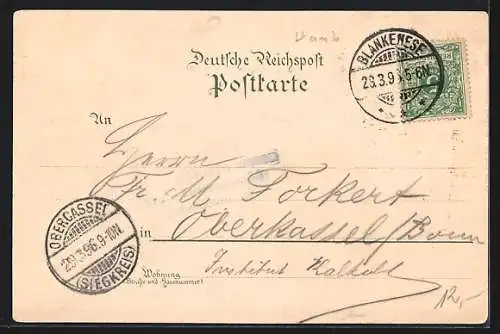 Hamb
Deutsche Reichspost
Postkarte
BLANKENESE
28.3.96 5-6N.
An
Herrn
Fr. M. Forkert
in Oberkassel/Bonn
Institut Kalkuhl
Wohnung
(Straße und Hausnummer)
OBERCASSEL
29.3.96.9-10N.
(SIEGKREIS)
12,-